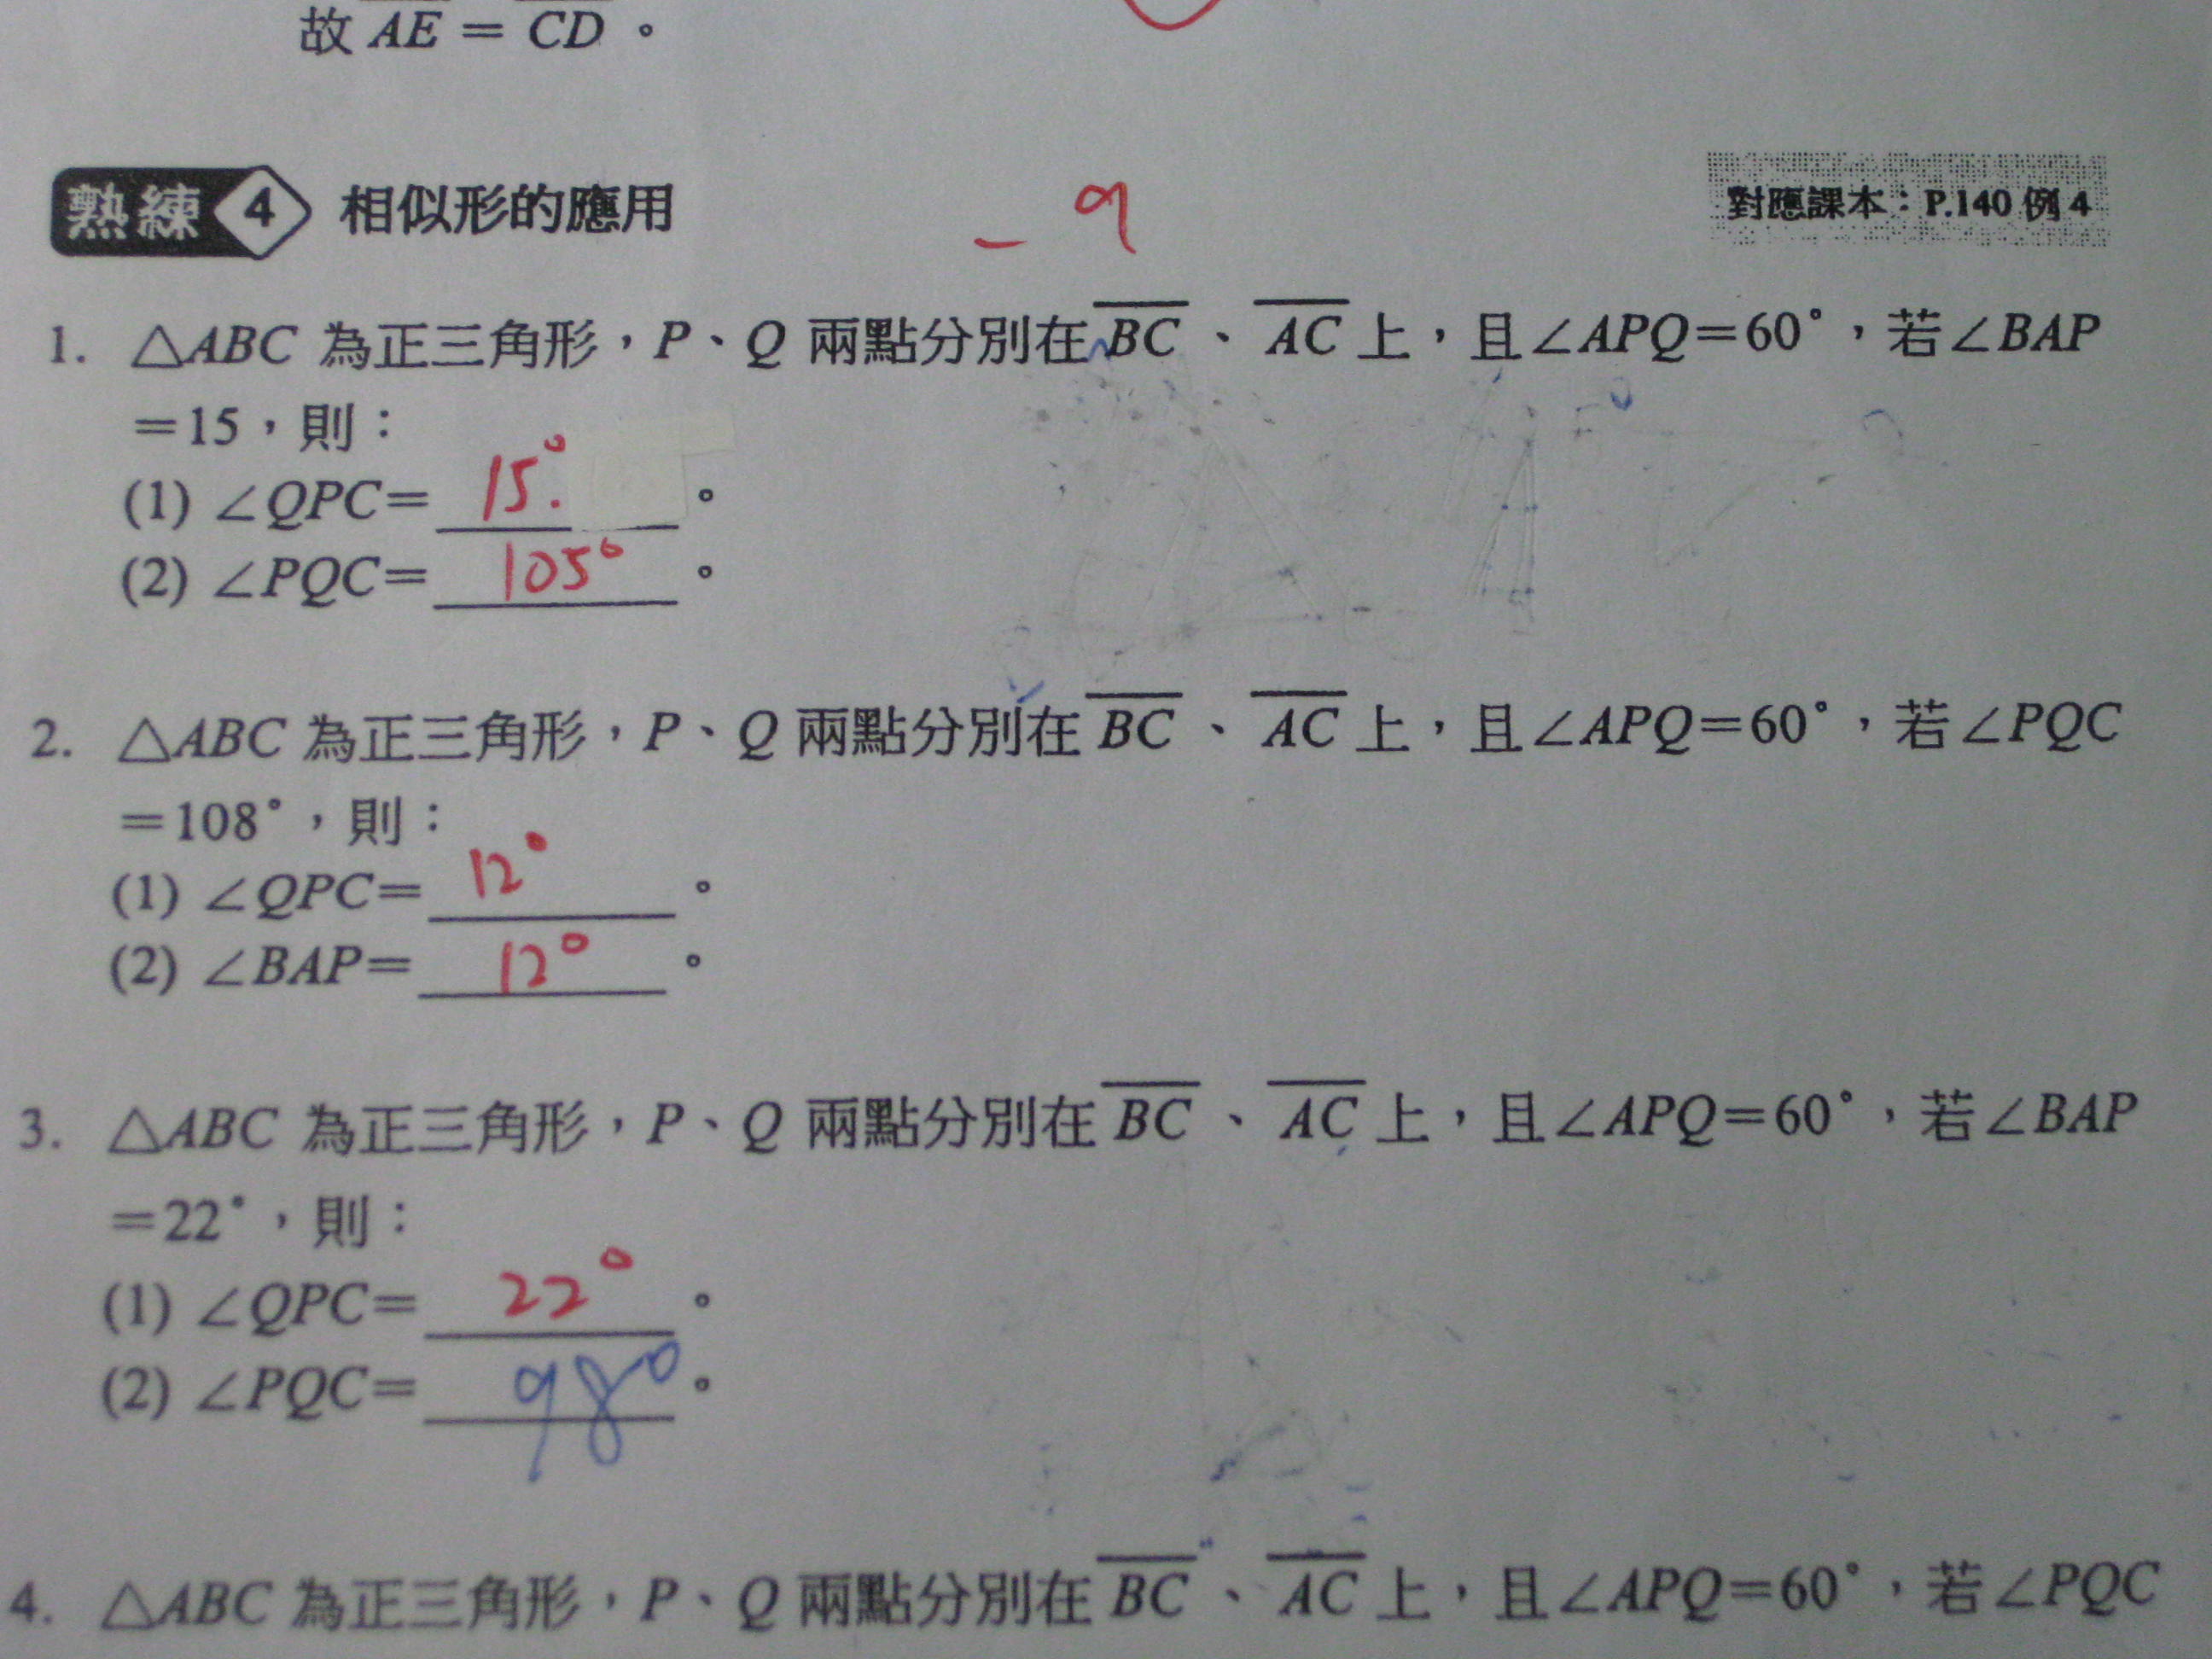 故 AE = CD。
熟練 4 相似形的應用 －9 對應課本：P.140 例 4
1. △ABC 為正三角形，P、Q 兩點分別在 BC、AC 上，且∠APQ=60°，若∠BAP
=15，則：
(1) ∠QPC= 15°.。
(2) ∠PQC= 105°。
2. △ABC 為正三角形，P、Q 兩點分別在 BC、AC 上，且∠APQ=60°，若∠PQC
=108°，則：
(1) ∠QPC= 12°。
(2) ∠BAP= 12°。
3. △ABC 為正三角形，P、Q 兩點分別在 BC、AC 上，且∠APQ=60°，若∠BAP
=22°，則：
(1) ∠QPC= 22°。
(2) ∠PQC= 98°。
4. △ABC 為正三角形，P、Q 兩點分別在 BC、AC 上，且∠APQ=60°，若∠PQC